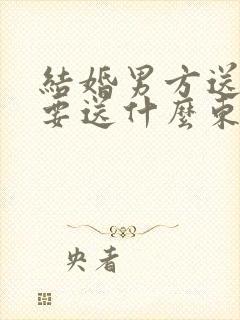 結婚男方送
要送什麼東
央者